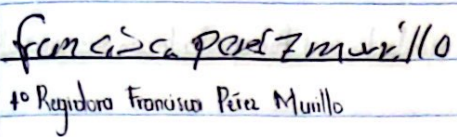 francisca perez murrillo
1º Regidora Francisca Pérez Murillo